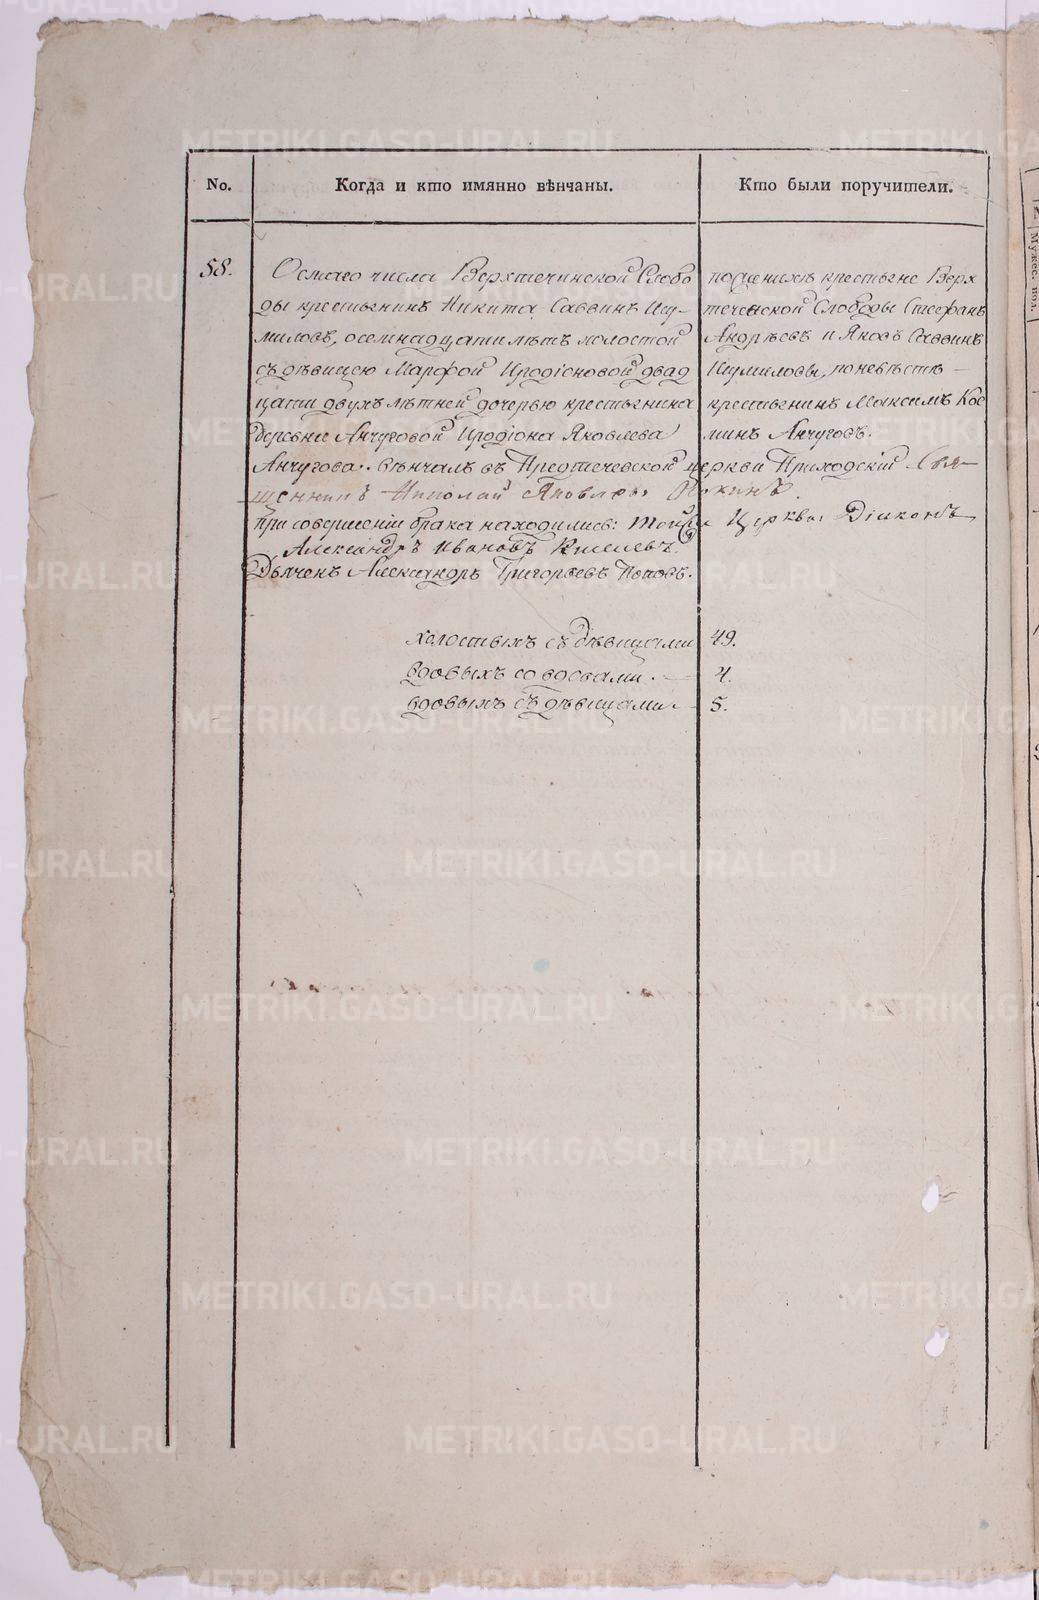 No.
Когда и кто имянно вѣнчаны.
Кто были поручители.
58.
Осмаго числа Верхтечинской Слобо
ды крестьянинъ Никита Саввинъ Шу-
миловъ, осемнадцати лѣтъ холостой
съ дѣвицею Марфой Иродіоновой двад
цати двухъ лѣтней дочерью крестьянина
деревни Анчуговой Иродіона Яковлева
Анчугова. Вѣнчалъ въ Предтечевской церкви Приходскій Свя-
щенникъ Николай Яковлевъ
при совершеніи брака находились: тойже Церкви Діаконъ
Александръ Ивановъ Киселевъ.
Дьячекъ Александръ Григорьевъ Поповъ.
по женихѣ крестьяне Верх
теченской Слободы Стефанъ
Андрѣевъ и Яковъ Саввинъ
Шумиловы, по невѣстѣ —
крестьянинъ Максимъ Кос
минъ Анчуговъ.
холостыхъ съ дѣвицами 49.
вдовыхъ со вдовами. — 4.
вдовыхъ съ дѣвицами — 5.
METRIKI.GASO-URAL.RU